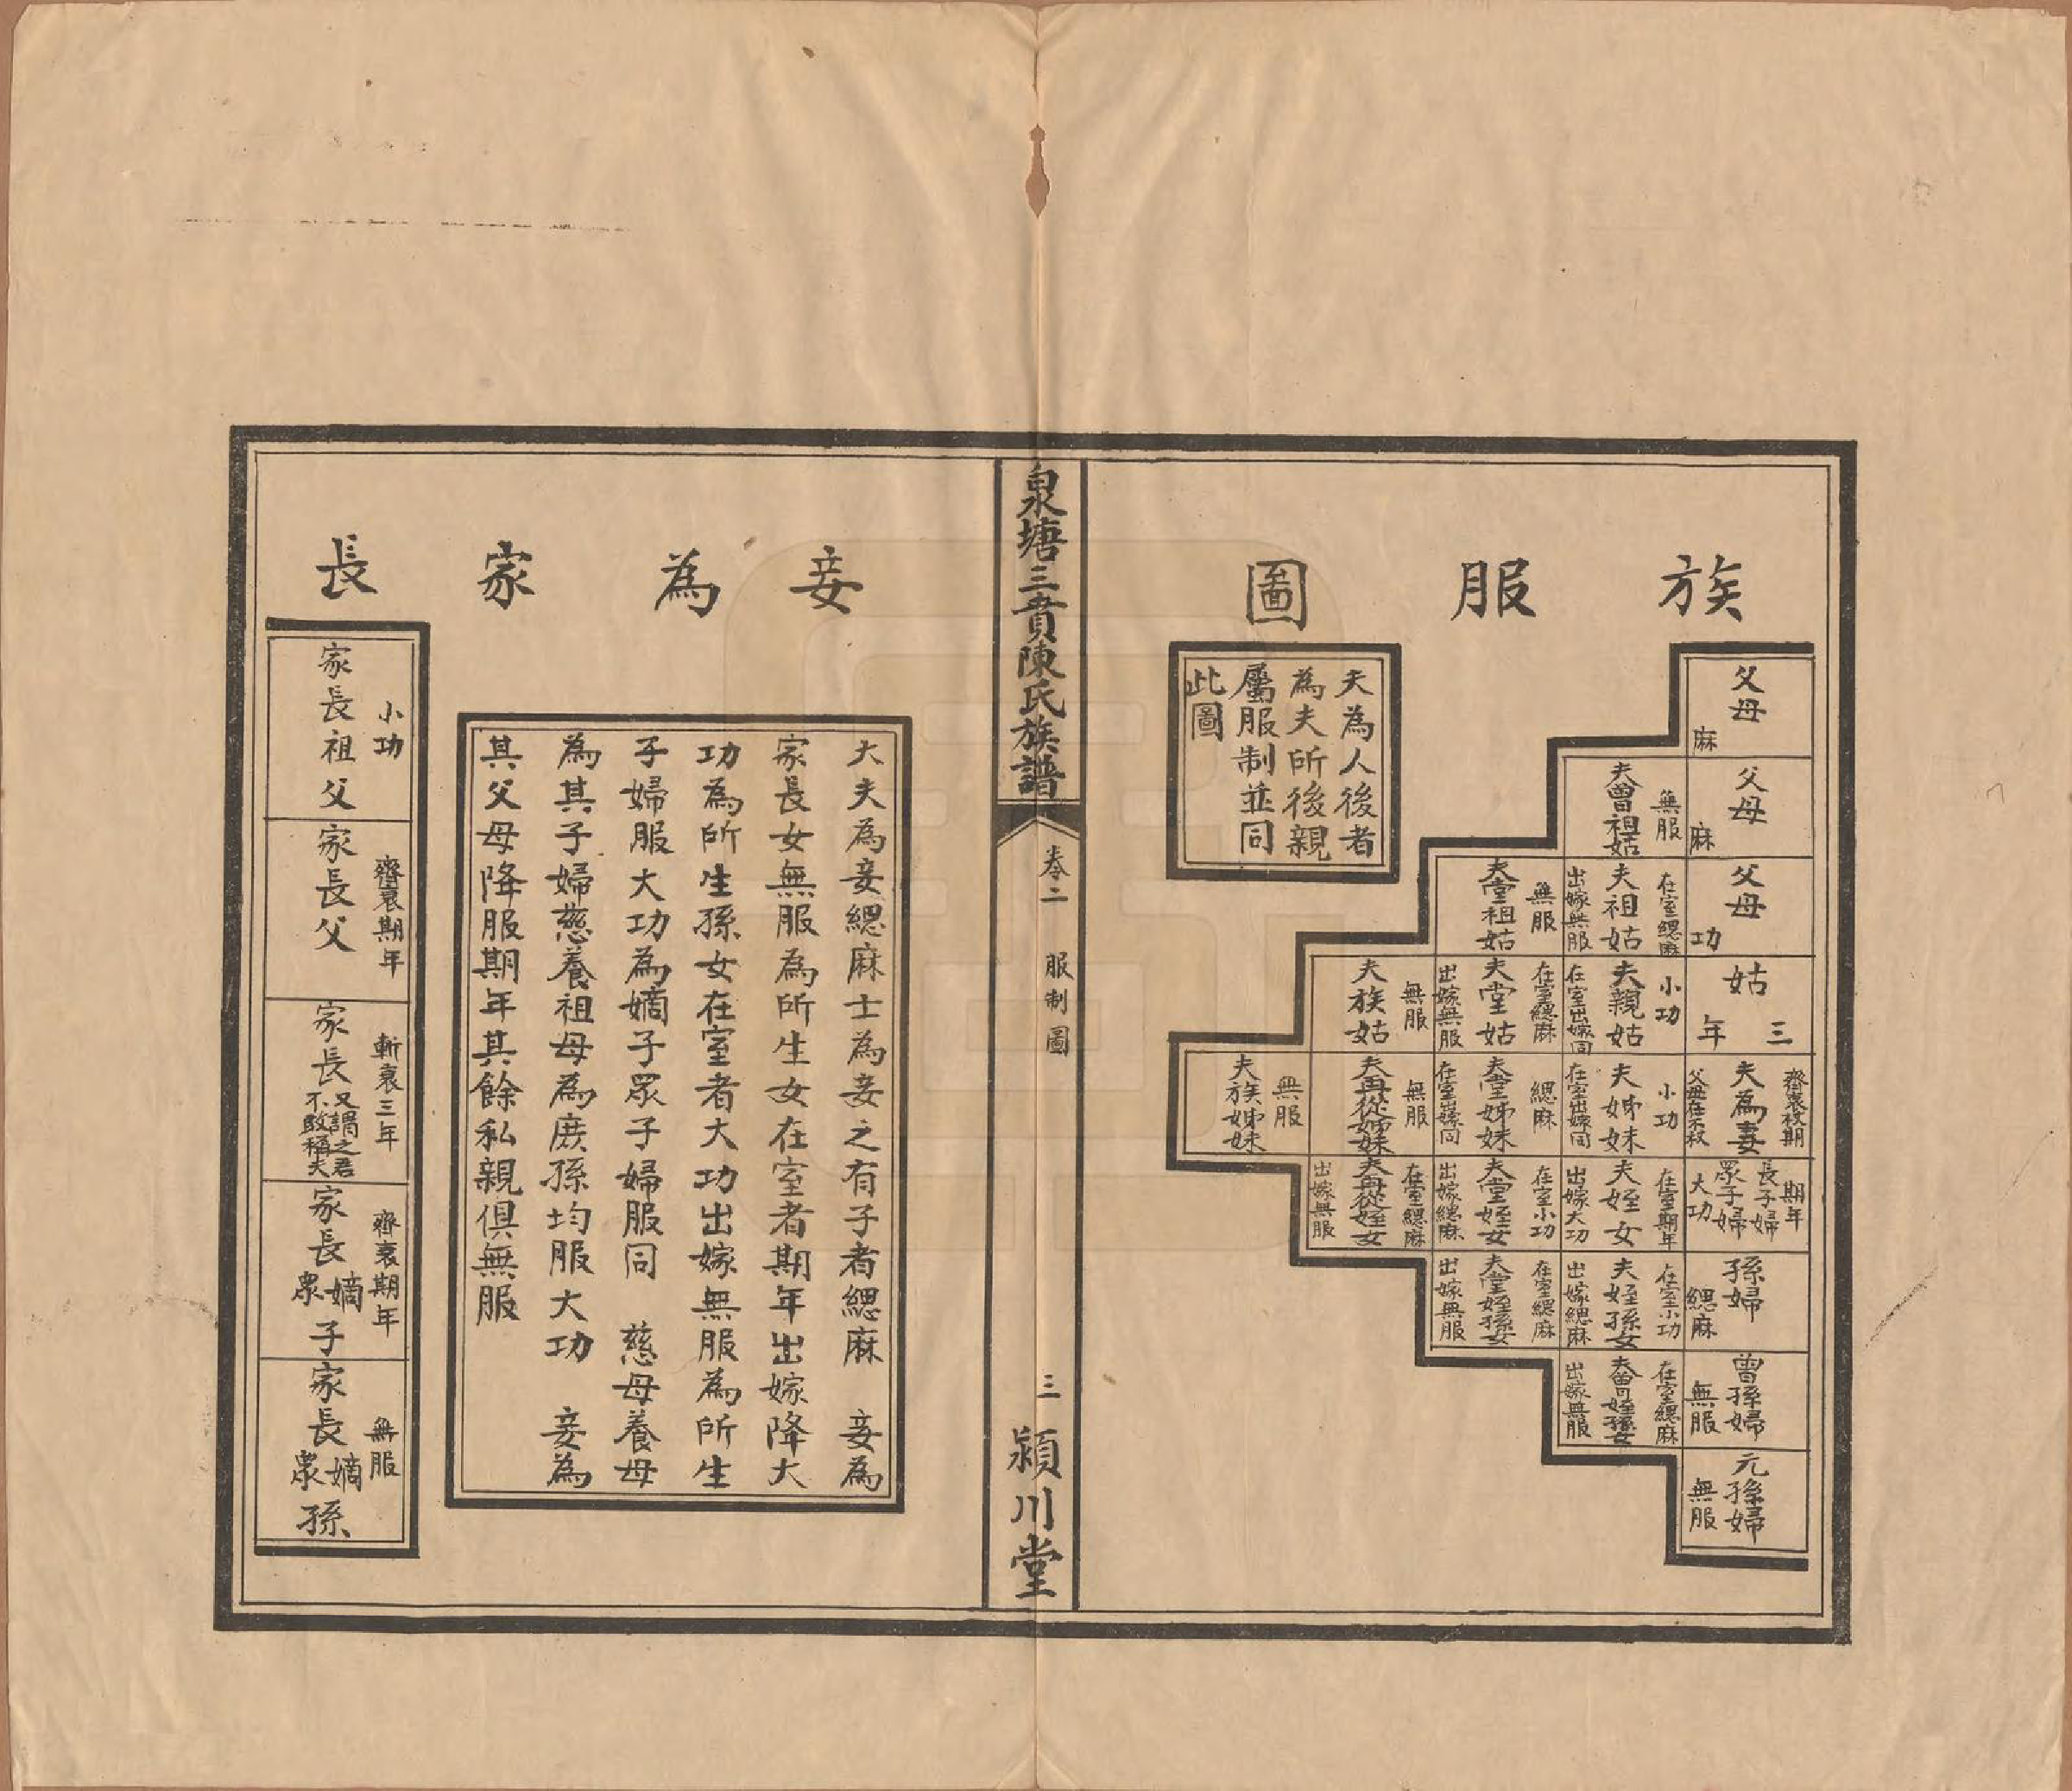 族服圖
父母
麻
父母
麻
夫曾祖姑
無服
父母
功
夫祖姑
在室緦麻
出嫁無服
夫堂祖姑
無服
姑
三年
夫親姑
小功
在室出嫁同
夫堂姑
在室緦麻
出嫁無服
夫族姑
無服
夫為妻
齊衰杖期
父母在不杖
夫姊妹
小功
在室出嫁同
夫堂姊妹
緦麻
在室出嫁同
夫再從姊妹
無服
夫族姊妹
無服
長子婦
期年
眾子婦
大功
夫姪女
在室期年
出嫁大功
夫堂姪女
在室小功
出嫁緦麻
夫再從姪女
在室緦麻
出嫁無服
孫婦
緦麻
夫姪孫女
在室小功
出嫁緦麻
夫堂姪孫女
在室緦麻
出嫁無服
曾孫婦
無服
夫曾姪孫女
在室緦麻
出嫁無服
元孫婦
無服
夫為人後者
為夫所後親
屬服制並同
此圖
泉塘三賁陳氏族譜
卷二
服制圖
三
潁川堂
妾為家長
大夫為妾緦麻士為妾之有子者緦麻 妾為
家長女無服為所生女在室者期年出嫁降大
功為所生孫女在室者大功出嫁無服為所生
子婦服大功為嫡子眾子婦服同 慈母養母
為其子婦慈養祖母為庶孫均服大功 妾為
其父母降服期年其餘私親俱無服
小功
家長祖父
齊衰期年
家長父
斬衰三年
家長
又謂之君
不敢稱夫
齊衰期年
家長嫡眾子
無服
家長嫡眾孫